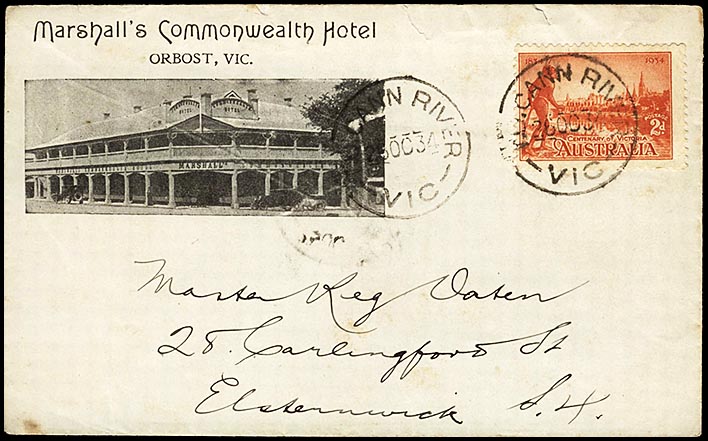 Marshall's Commonwealth Hotel
ORBOST, VIC.
HOTEL
MARSHALL
CANN RIVER
OC34
VIC
1834 1934
POSTAGE
2d
CENTENARY OF VICTORIA
AUSTRALIA
CANN RIVER
VIC
Master Reg Oaten
28. Carlingford St
Elsternwick S.4.